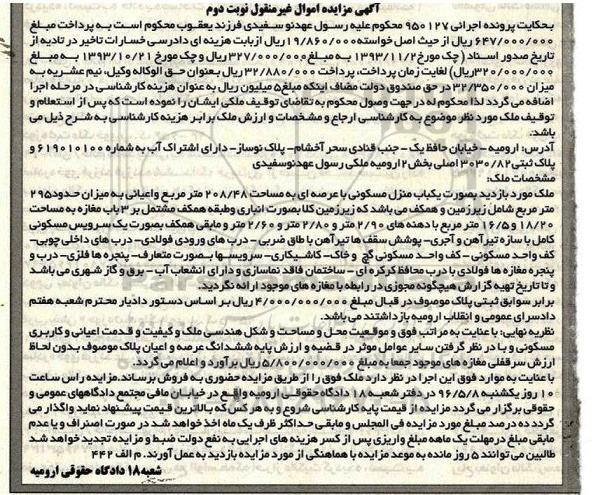 آگهی مزایده اموال غیرمنقول نوبت دوم
بحکایت پرونده اجرائی ۹۵۰۱۲۷ محکوم علیه رسول عهدنو سفیدی فرزند یعقوب محکوم است به پرداخت مبلغ
۶۴۷/۰۰۰/۰۰۰ ریال از حیث اصل خواسته ۱۹/۸۶۰/۰۰۰ ریال ازبابت هزینه ای دادرسی خسارات تاخیر در تادیه از
تاریخ صدور اسناد ( چک مورخ ۱۳۹۳/۱۱/۲ به مبلغ ۳۲۷/۰۰۰/۰۰۰ ریال و چک مورخ ۱۳۹۳/۱۰/۲۱ به مبلغ
۳۲۰/۰۰۰/۰۰۰ریال) لغایت زمان پرداخت، پرداخت ۳۲/۸۸۰/۰۰۰ ریال بعنوان حق الوکاله وکیل، نیم عشریه به
میزان ۳۲/۳۵۰/۰۰۰ در حق صندوق دولت مضاف اینکه مبلغ ۵ میلیون ریال به عنوان هزینه کارشناسی در مرحله اجرا
اضافه می گردد لذا محکوم له در جهت وصول محکوم به تقاضای توقیف ملکی ایشان را نموده است که پس از استعلام و
توقیف ملک مورد نظر موضوع به کارشناسی ارجاع و مشخصات و ارزش ملک برابر هزینه کارشناسی به شرح ذیل می
باشد.
آدرس: ارومیه – خیابان حافظ یک – جنب قنادی سحر آخشام – پلاک نوساز- دارای اشتراک آب به شماره ۶۱۹۰۱۰۱۰۰ و
پلاک ثبتی ۳۰۳۰/۸۲ اصلی بخش ۲ ارومیه ملکی رسول عهدنوسفیدی
مشخصات ملک:
ملک مورد بازدید بصورت یکباب منزل مسکونی با عرصه ای به مساحت ۲۰۸/۴۸ متر مربع واعیانی به میزان حدود۲۹۵
متر مربع شامل زیرزمین و همکف می باشد که زیرزمین کلا بصورت انباری وطبقه همکف مشتمل بر ۳ باب مغازه به مساحت
۱۸/۲۰ و ۱۶/۵ متر مربع با دهنه های ۲/۹۰ متر و ۲/۸۰ متر و ۲/۶۰ متر و مابقی همکف بصورت یک سرویس مسکونی
کامل با سازه تیرآهن و آجری- پوشش سقف ها تیرآهن با طاق ضربی – درب های ورودی فولادی- درب های داخلی چوبی-
کف واحد مسکونی – کف واحد مسکونی گچ و خاک- کاشیکاری- سرویسها بصورت متعارف- پنجره ها فلزی- درب و
پنجره مغازه ها فولادی با درب محافظ کرکره ای – ساختمان فاقد نماسازی و دارای انشعاب آب – برق و گاز شهری می باشد
و تا تاریخ تهیه گزارش هیچگونه مجوزی در رابطه با مغازه های موجود ارائه نگردید.
برابر سوابق ثبتی پلاک موصوف در قبال مبلغ ۴/۰۰۰/۰۰۰/۰۰۰ ریال بر اساس دستور دادیار محترم شعبه هفتم
دادسرای عمومی و انقلاب ارومیه بازداشتند می باشد.
نظریه نهایی: با عنایت به مراتب فوق و موقعیت محل و مساحت و شکل هندسی ملک و کیفیت و قدمت اعیانی و کاربری
مسکونی و با در نظر گرفتن سایر عوامل موثر در قضیه و ارزش پایه ششدانگ عرصه و اعیان پلاک موصوف بدون لحاظ
ارزش سرقفلی مغازه های موجود جمعا به مبلغ ۵/۸۰۰/۰۰۰/۰۰۰ ریال برآورد و اعلام می گردد.
با عنایت به موارد فوق این اجرا در نظر دارد ملک فوق را از طریق مزایده حضوری به فروش برساند.مزایده راس ساعت
۱۰ روز یکشنبه ۹۶/۵/۸ در دفتر شعبه ۱۸ دادگاه حقوقی ارومیه واقع در خیابان مافی مجتمع دادگاههای عمومی و
حقوقی برگزار می گردد مزایده از قیمت پایه کارشناسی شروع و به هر کس که بالاترین قیمت پیشنهاد نماید واگذار می
گردد ده درصد مبلغ مورد مزایده فی المجلس و مابقی حداکثر ظرف یک ماه اخذ خواهد شد در صورت انصراف و یا عدم
مابقی مبلغ در مهلت یک ماهه مبلغ واریزی پس از کسر هزینه های اجرایی به نفع دولت ضبط و مزایده تجدید خواهد شد
طالبین می توانند ۵ روز مانده به موعد مزایده با هماهنگی از مورد مزایده بازدید به عمل آورند. م الف ۴۴۲
شعبه ۱۸ دادگاه حقوقی ارومیه